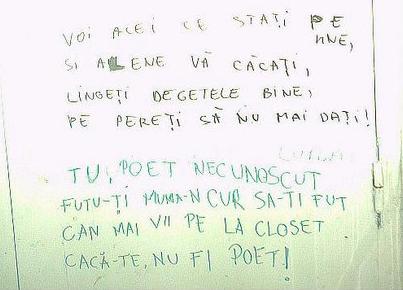 VOI ACEI CE STAȚI PE
MINE,
SI ALENE VĂ CĂCAȚI,
LINGEȚI DEGETELE BINE,
PE PEREȚI SĂ NU MAI DAȚI!
TU, POET NECUNOSCUT
FUTU-ȚI MUMA-N CUR SA-TI FUT
CAN MAI VII PE LA CLOSET
CACĂ-TE, NU FI POET!